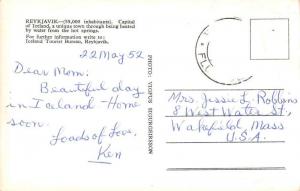 REYKJAVIK.—(59,000 inhabitants). Capital
of Iceland, a unique town through being heated
by water from the hot springs.
For further information write to:
Iceland Tourist Bureau, Reykjavik.
22 May 52
Dear Mom:
Beautiful day
in Iceland - Home
soon.
Loads of love,
Ken
PHOTO: VIGFUS SIGURGEIRSSON
Mrs. Jessie L. Robbins
8 West Water St,
Wakefield, Mass
U.S.A.